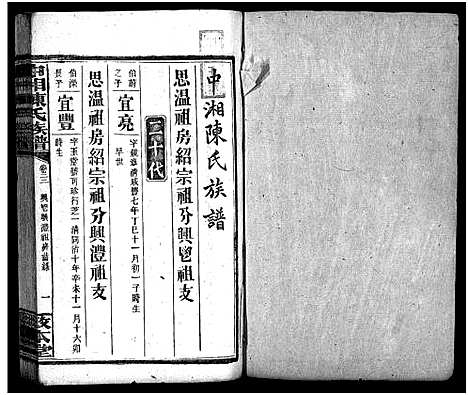 中湘陳氏族譜
思溫祖房紹宗祖分興鬯祖支
二十代
伯蔚之子
宜亮
字鏡臺清咸豐七年丁巳十一月初一子時生
早世
思溫祖房紹宗祖分興澧祖支
伯深長子
宜豐
字玉堂號可珍行芝一清同治十年辛未十一月十六卯時生
中湘陳氏族譜
卷三
一
敦本堂